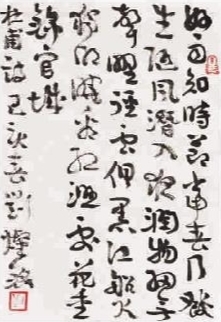 好雨知時節當春乃發
生隨風潛入夜潤物細無
聲野徑雲俱黑江船火
獨明曉看紅濕處花重
錦官城
杜甫詩劉燦銘